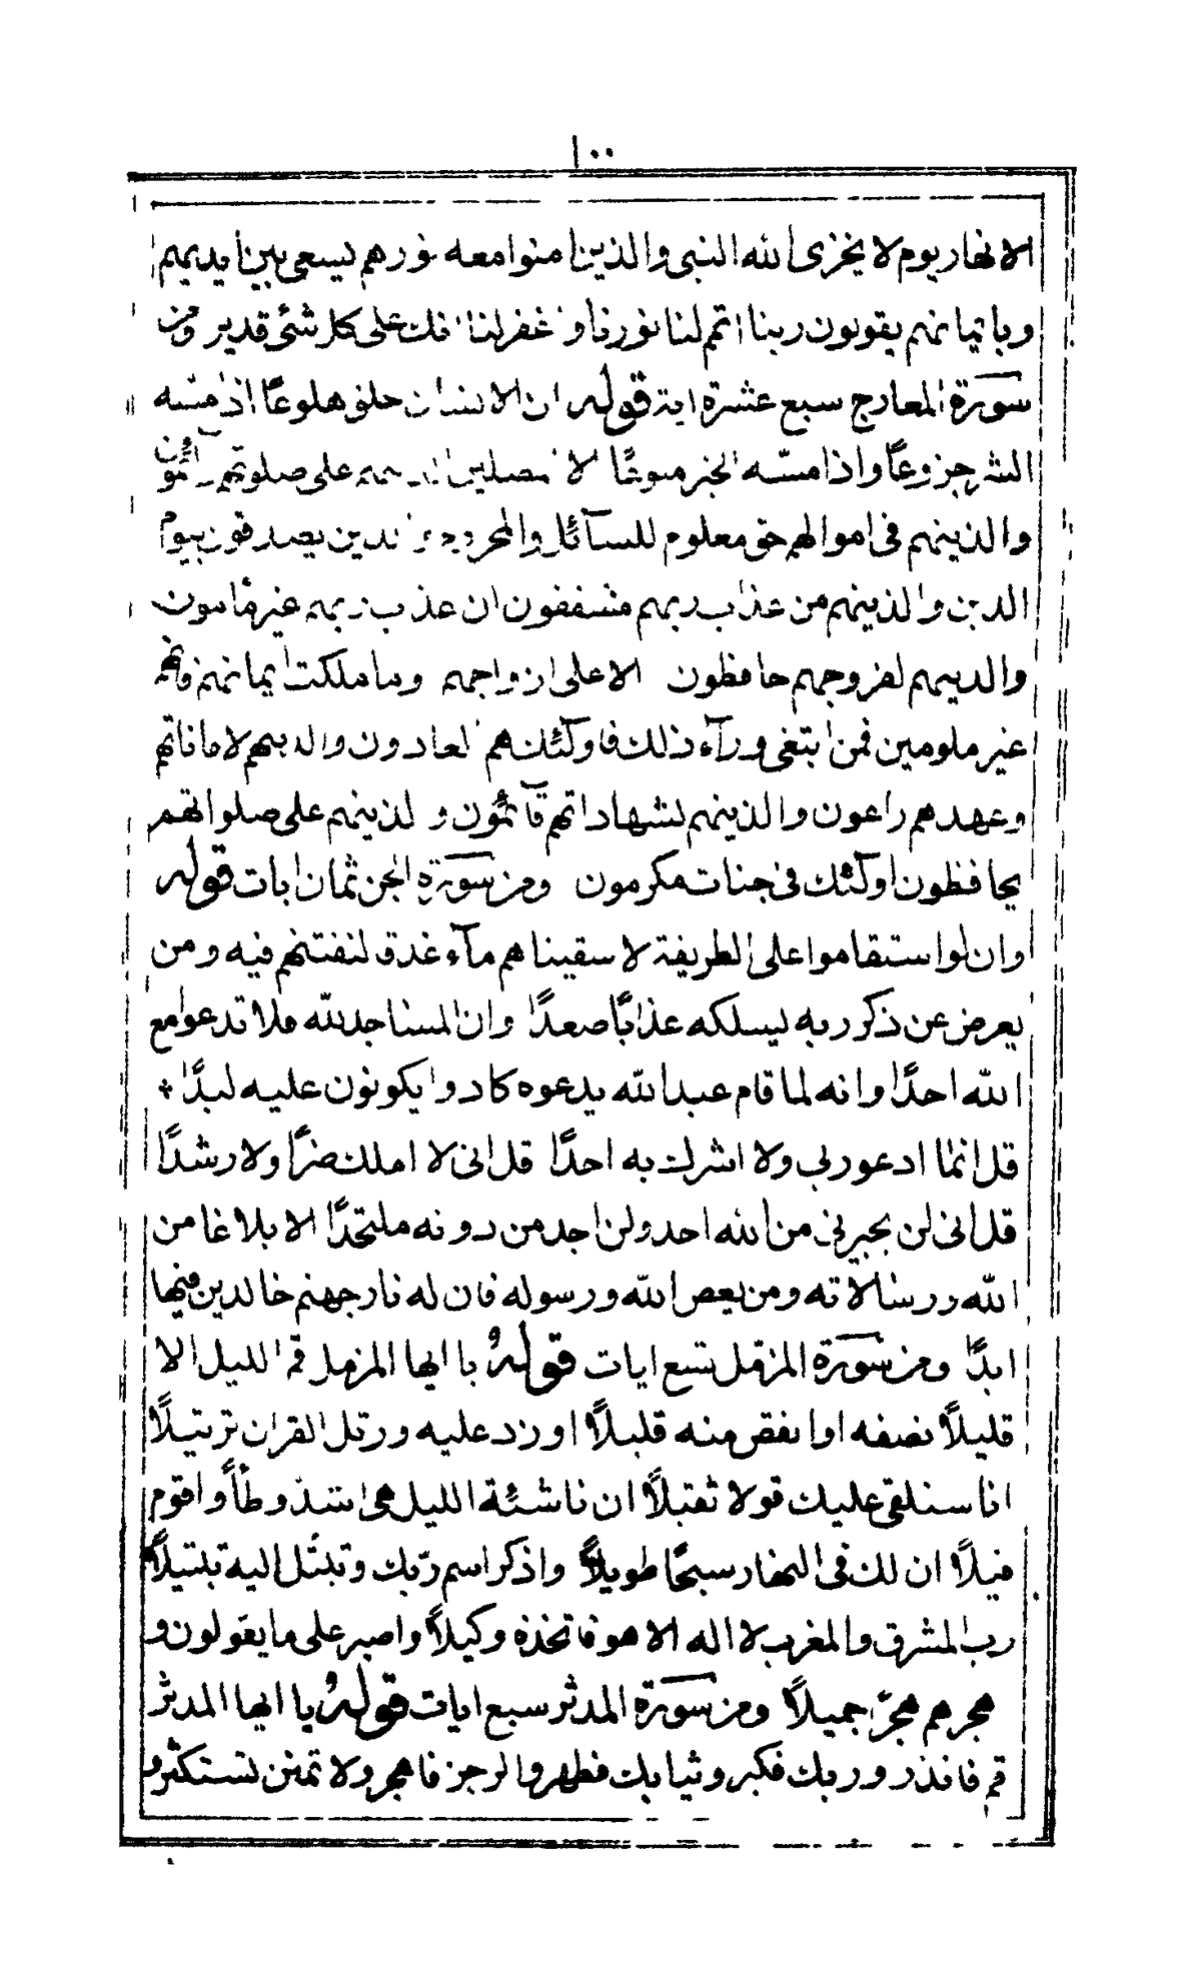 ١٠٠
الانهار يوم لا يخزى الله النبى والذين امنوا معه نورهم يسعى بين ايديهم
وبايمانهم يقولون ربنا اتمم لنا نورنا واغفر لنا انك على كل شئ قدير ومن
سورة المعارج سبع عشرة اية قوله ان الانسان خلق هلوعًا اذا مسّه
الشر جزوعًا واذا مسّه الخير منوعًا الا المصلين الذينهم على صلوتهم دآئمون
والذينهم فى اموالهم حق معلوم للسآئل والمحروم والذين يصدقون بيوم
الدين والذينهم من عذاب ربهم مشفقون ان عذاب ربهم غير مأمون
والذينهم لفروجهم حافظون الا على ازواجهم وما ملكت ايمانهم فانهم
غير ملومين فمن ابتغى ورآء ذلك فاولئك هم العادون والذينهم لاماناتهم
وعهدهم راعون والذينهم بشهاداتهم قآئمون والذينهم على صلواتهم
يحافظون اولئك فى جنات مكرمون ومن سورة الجن ثمان ايات قوله
وان لو استقاموا على الطريقة لاسقيناهم مآء غدق لنفتنهم فيه ومن
يعرض عن ذكر ربه يسلكه عذابًا صعدًا وان المساجد لله فلا تدعوا مع
الله احدًا وانه لما قام عبد الله يدعوه كادوا يكونون عليه لبدًا *
قل انما ادعو ربى ولا اشرك به احدًا قل انى لا املك ضرًا ولا رشدًا
قل انى لن يجيرنى من الله احد ولن اجد من دونه ملتحدًا الا بلاغا من
الله ورسالاته ومن يعص الله ورسوله فان له نار جهنم خالدين فيها
ابدًا ومن سورة المزمل تسع ايات قوله يا ايها المزمل قم الليل الا
قليلاً نصفه او انقص منه قليلاً او زد عليه ورتل القران ترتيلاً
انا سنلقى عليك قولا ثقيلاً ان ناشئة الليل هى اشدّ وطأً واقوم
قيلاً ان لك فى النهار سبحًا طويلاً واذكر اسم ربّك وتبتّل اليه تبتيلاً
رب المشرق والمغرب لا اله الا هو فاتخذه وكيلاً واصبر على ما يقولون و
هجرهم هجرّا جميلاً ومن سورة المدثر سبع ايات قوله يا ايها المدثر
قم فانذر وربك فكبر وثيابك فطهر والرجز فاهجر ولا تمنن تستكثر و